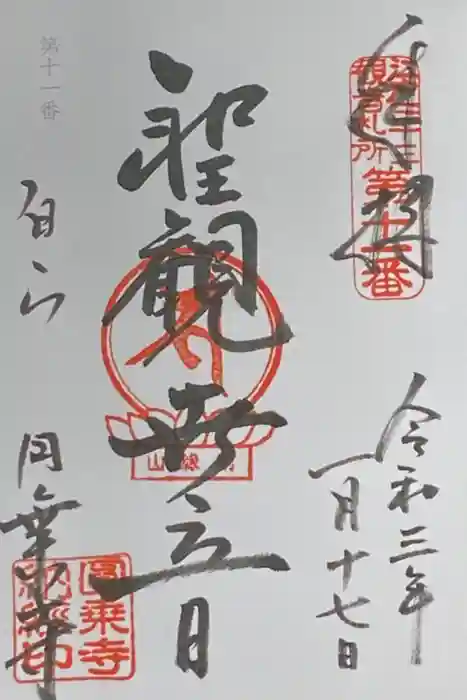 奉拝
江戸三十三
観音札所
第十一番
令和三年
一月十七日
聖観世音
南縁山
第十一番
白山
円乗寺
圓乗寺
納経印